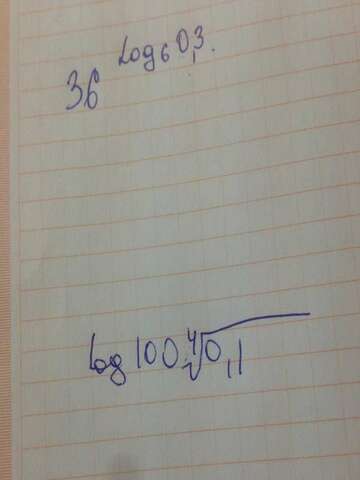 36^Log₆ 0,3.
log 100 ∜0,1